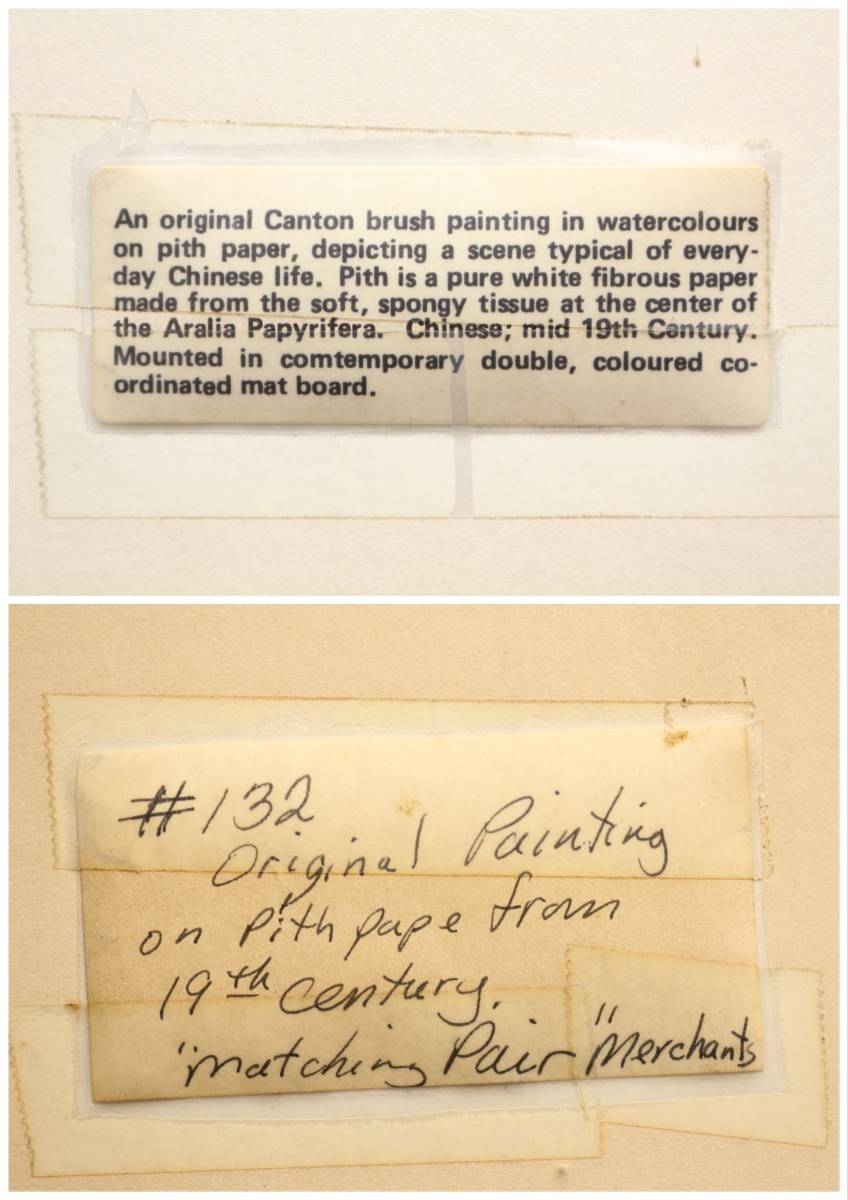 An original Canton brush painting in watercolours
on pith paper, depicting a scene typical of every-
day Chinese life. Pith is a pure white fibrous paper
made from the soft, spongy tissue at the center of
the Aralia Papyrifera. Chinese; mid 19th Century.
Mounted in comtemporary double, coloured co-
ordinated mat board.
#132
Original Painting
on Pith pape from
19th century.
"matching Pair "Merchants